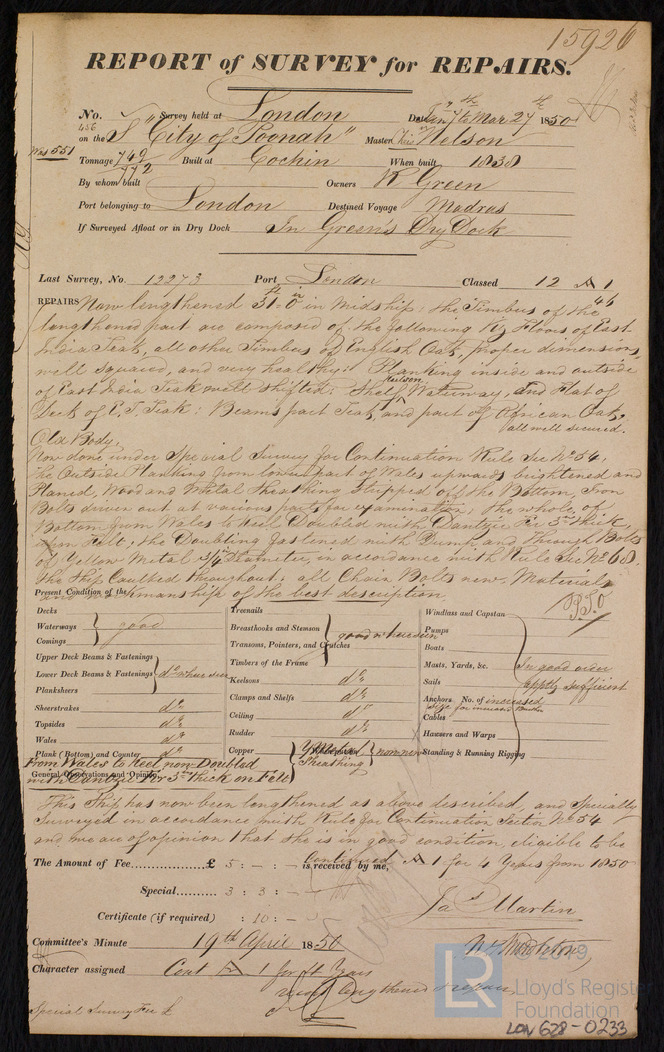 15926
REPORT of SURVEY for REPAIRS.
No. 456 Survey held at London Date Jany 7th to Mar 27th 1850
on the S "City of Poonah" Master Nelson
551 Tonnage 749 Built at Cochin When built 1838
772
By whom built Owners R Green
Port belonging to London Destined Voyage Madras
If Surveyed Afloat or in Dry Dock In Green's Dry Dock
Last Survey, No. 12273 Port London Classed 12 A 1
46
REPAIRS Now lengthened 31ft 0in in midship: the Timbers of the
lengthened part are composed of the following viz Floors of East
India Teak, all other Timbers of English Oak, proper dimensions,
well squared, and very healthy: Planking inside and outside
of East India Teak well shifted: Shelf, Keelson, Waterway, and Flat of
Deck of E.I. Teak: Beams part Teak, and part of African Oak,
all well secured.
Old Body,
Now done under Special Survey for Continuation Rule Sec No 54,
the Outside Planking from lower part of Wales upwards brightened and
Planed, Wood and Metal Sheathing Stripped off the Bottom, Iron
Bolts driven out at various parts for examination, the whole of
Bottom from Wales to Keel Doubled with Dantzic Fir 3in thick,
upon Felt, the Doubling fastened with Dump and through Bolts
of Yellow Metal 3/4in Diameter, in accordance with Rule Sec No 68.
the Ship Caulked throughout: all Chain Bolts new, Materials
and workmanship of the best description
P.T.O
Present Condition of the
Decks
Waterways
Comings
good
Upper Deck Beams & Fastenings
Lower Deck Beams & Fastenings
do where seen
Planksheers
Sheerstrakes do
Topsides do
Wales do
Plank (Bottom) and Counter do
From Wales to Keel now Doubled
with Dantzic Fir 3in thick on Felt
Treenails
Breasthooks and Stemson
Transoms, Pointers, and Crutches
good where seen
Timbers of the Frame
Keelsons do
Clamps and Shelfs do
Ceiling do
Rudder do
Copper Yellow Metal Sheathing now new
Windlass and Capstan
Pumps
Boats
Masts, Yards, &c.
Sails
In good order
apply sufficient
Anchors No. of increased
size for increased burthen
Cables
Hawsers and Warps
Standing & Running Rigging
General Observations and Opinion
This Ship has now been lengthened as above described, and Specially
Surveyed in accordance with Rule for Continuation Section No 54
and we are of opinion that she is in good condition, eligible to be
The Amount of Fee £ 5 : - : - is received by me, Continued A 1 for 4 Years from 1850
Special 3 : 3 : -
Certificate (if required) : 10 : -
Jas Martin
Committee's Minute 19th April 1850
Character assigned Cont A 1 for 4 Years
lengthened & repair
Special Survey Fee £
LR © 2019
Lloyd's Register
Foundation
LON 628-0233